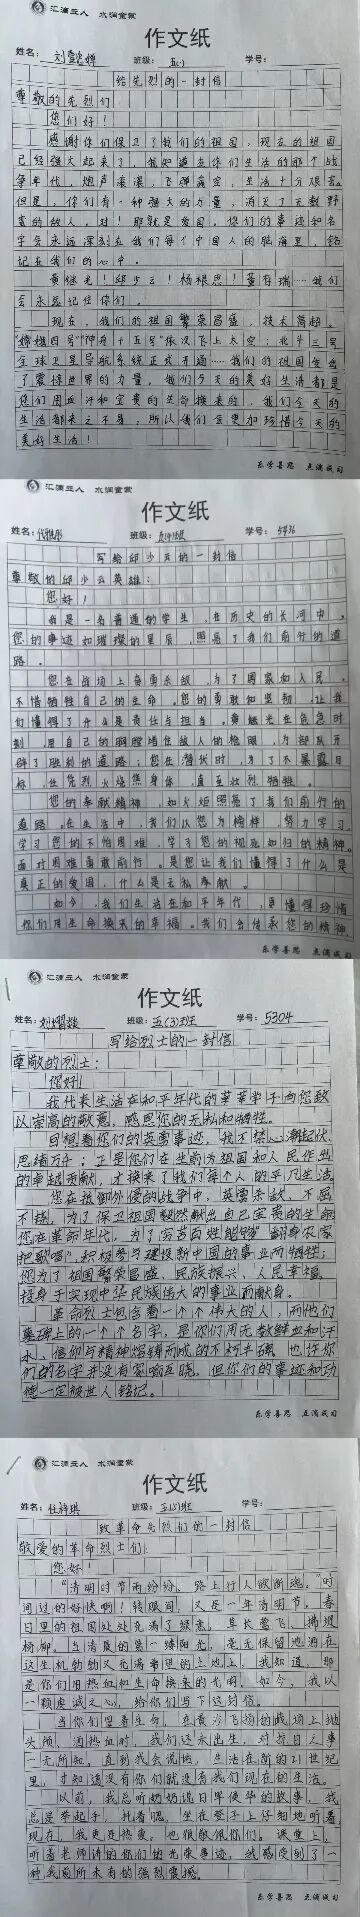 汇滴立人 水润童蒙
作文纸
姓名： 班级：五(1) 学号：
给先烈的一封信
尊敬的先烈们
您们好！
感谢你们保卫了我们的祖国，现在的祖国
已经强大起来了，我知道在你们生活的那个战
争年代，炮声滚滚，飞弹高空，生活十分艰苦。
但是，你们有一种强大的力量，消灭了无数野
蛮的敌人，对！那就是爱国。你们的事迹和名
字会永远深刻在我们每个中国人的脑海里，铭
记在我们的心中。
黄继光！邱少云！杨根思！董存瑞……我们
会永远记住你们。
现在，我们的祖国繁荣昌盛，技术高超。
“嫦娥四号”“神舟十五号”依次飞上太空；北斗三号
全球卫星导航系统正式开通……我们的祖国发出
了震惊世界的力量，我们今天的美好生活都是
您们用血汗和宝贵的生命换来的，我们今天的
生活都来之不易，所以我们会更加珍惜今天的
美好生活！
乐学善思 点滴成习
汇滴立人 水润童蒙
作文纸
姓名： 班级： 学号：5436
写给邱少云的一封信
尊敬的邱少云英雄：
您好！
我是一名普通的学生，在历史的长河中，
您的事迹如璀璨的星辰，照亮了我们前行的道
路。
您在战场上奋勇杀敌，为了国家和人民，
不惜牺牲自己的生命。您的勇敢和坚韧，让我
们懂得了什么是责任与担当。黄继光在危急时
刻，用自己的胸膛堵住敌人的枪眼，为部队开
辟了胜利的道路；您在潜伏时，为了不暴露目
标，任凭烈火烧焦身体，直至壮烈牺牲。
您的奉献精神，如火炬照亮了我们前行的
道路。在生活中，我们以您为榜样，努力学习。
学习您的不怕困难，学习您的视死如归的精神。
面对困难勇敢前行。是您让我们懂得了什么是
真正的爱国，什么是无私奉献。
如今，我们生活在和平年代，更懂得珍惜
你们用生命换来的幸福。我们会传承您的精神
乐学善思 点滴成习
汇滴立人 水润童蒙
作文纸
姓名： 班级：五(3)班 学号：5304
写给烈士的一封信
尊敬的烈士：
您好！
我代表生活在和平年代的莘莘学子向您致
以崇高的敬意，感恩您的无私和牺牲。
回想着你们的英勇事迹，我不禁心潮起伏、
思绪万千；正是你们在生前为祖国和人民作出
的卓越贡献，才换来了我们每个人的平凡生活。
您在抵御外侵的战争中，英勇杀敌、不屈
不挠，为了保卫祖国毅然献出自己宝贵的生命；
您在革命年代，为了劳苦百姓能够“翻身农家
把歌唱”，积极参与建设新中国的事业而牺牲；
您为了祖国繁荣昌盛、民族振兴、人民幸福，
投身于实现中华民族伟大的事业而献身。
革命烈士包含着一个个伟大的人，而他们
墓碑上的一个个名字，是你们用无数鲜血和汗
水、信仰与精神熔铸而成的不朽丰碑。也许你
们的名字并没有家喻户晓，但你们的事迹和功
德一定被世人铭记。
乐学善思 点滴成习
汇滴立人 水润童蒙
作文纸
姓名：任梓琪 班级：五(5)班 学号：
致革命先烈们的一封信
敬爱的革命烈士们：
您好！
“清明时节雨纷纷，路上行人欲断魂。”时
间过的好快啊！转眼间，又是一年清明节。春
日里的祖国处处充满了绿意，草长莺飞、拂堤
杨柳。当清晨的第一缕阳光，毫无保留地洒在
这生机勃勃又充满希望的土地上，我知道，那
是你们用热血和生命换来的光明，如今，我以
一颗虔诚之心，给你们写下这封信。
当你们冒着生命，在黄沙飞扬的战场上抛
头颅，洒热血时，我们还未出生，对抗日之事
一无所知。直到我会说话，生活在新的21世纪
里，才知道没有你们就没有我们现在的生活。
以前，我总听奶奶说日军侵华的故事，我
总是举起手，托着腮，坐在凳子上仔细地听着，
现在，我更是热衷，也很敬佩你们。课堂上，
听着老师讲的你们的光荣事迹，我感受到了一
种我前所未有的强烈震撼。
乐学善思 点滴成习